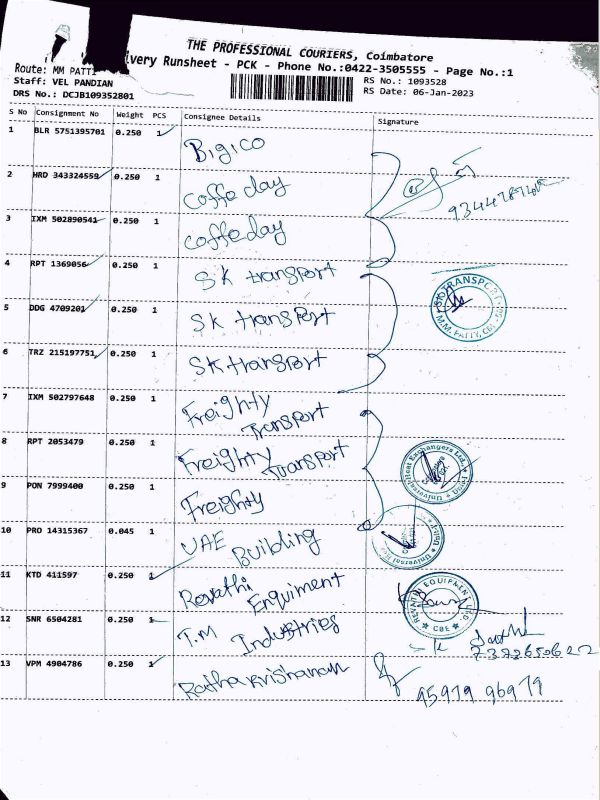 THE PROFESSIONAL COURIERS, Coimbatore
ivery Runsheet - PCK - Phone No.:0422-3505555 - Page No.:1
Route: MM PATTI
Staff: VEL PANDIAN
DRS No.: DCJB109352801
RS No.: 1093528
RS Date: 06-Jan-2023
S No Consignment No Weight PCS Consignee Details Signature
1 BLR 5751395701 0.250 1 Bigico
2 HRD 343324559 0.250 1 Coffe day
3 IXM 502890541 0.250 1 Coffe day
4 RPT 1369056 0.250 1 SK transport
5 DDG 4709201 0.250 1 SK transport
SK TRANSPORT
M.M. PATTY, CBE
6 TRZ 215197751 0.250 1 SK transport
7 IXM 502797648 0.250 1 Freighty Transport
8 RPT 2053479 0.250 1 Freighty Transport
9 PON 7999400 0.250 1 Freighty
10 PRO 14315367 0.045 1 UAE Building
11 KTD 411597 0.250 1 Revathi Enquiment
REVATHI EQUIPMENT LTD.
CBE
12 SNR 6504281 0.250 1 T.M Industries
13 VPM 4904786 0.250 1 Ratha krishanan
95979 96979